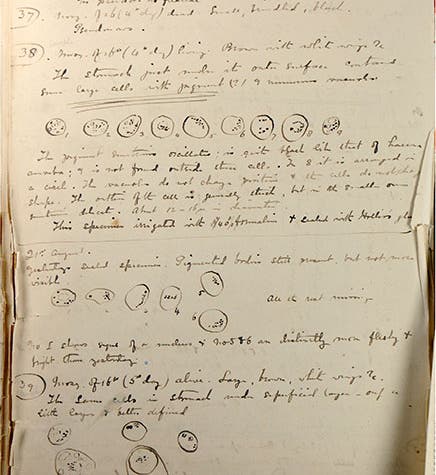 37) Mosq. of 16 (4th day) dead. Small, brindled, black.
38. Mosq. of 16th (4th day) living. Brown with white wings &c
The stomach just under its outer surface contained
some large cells with pigment (?) & numerous vacuoles
1 2 3 4 5 6 7 8 9
The pigment sometimes oscillates in quite that like that of haem
amoeba; & is not found outside these cells. In 8 it is arranged in
a circle. The vacuoles do not change position & the cells do not change
shape. The outline of the cell is generally thick, but in the smaller ones
sometimes delicate. About 12-16 in diameter
This specimen irrigated with 40% formalin & sealed with
21st August.
Yesterday's sealed specimen. Pigmented bodies still present, but not more
visible.
1 2 3 4 5 6
No 1 shows signs of a nucleus, & no 5 & 6 are distinctly more fleshy &
bright than yesterday.
39) Mosq. of 16th (5th day) alive. Large, brown, white wings &c.
The same cells in stomach under superficial layer
little larger & better defined